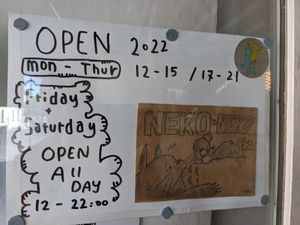 OPEN 2022
mon - Thur 12-15 / 17-21
Friday
+
Saturday
OPEN
All
DAY
12 - 22:00
NEKO-NEKO